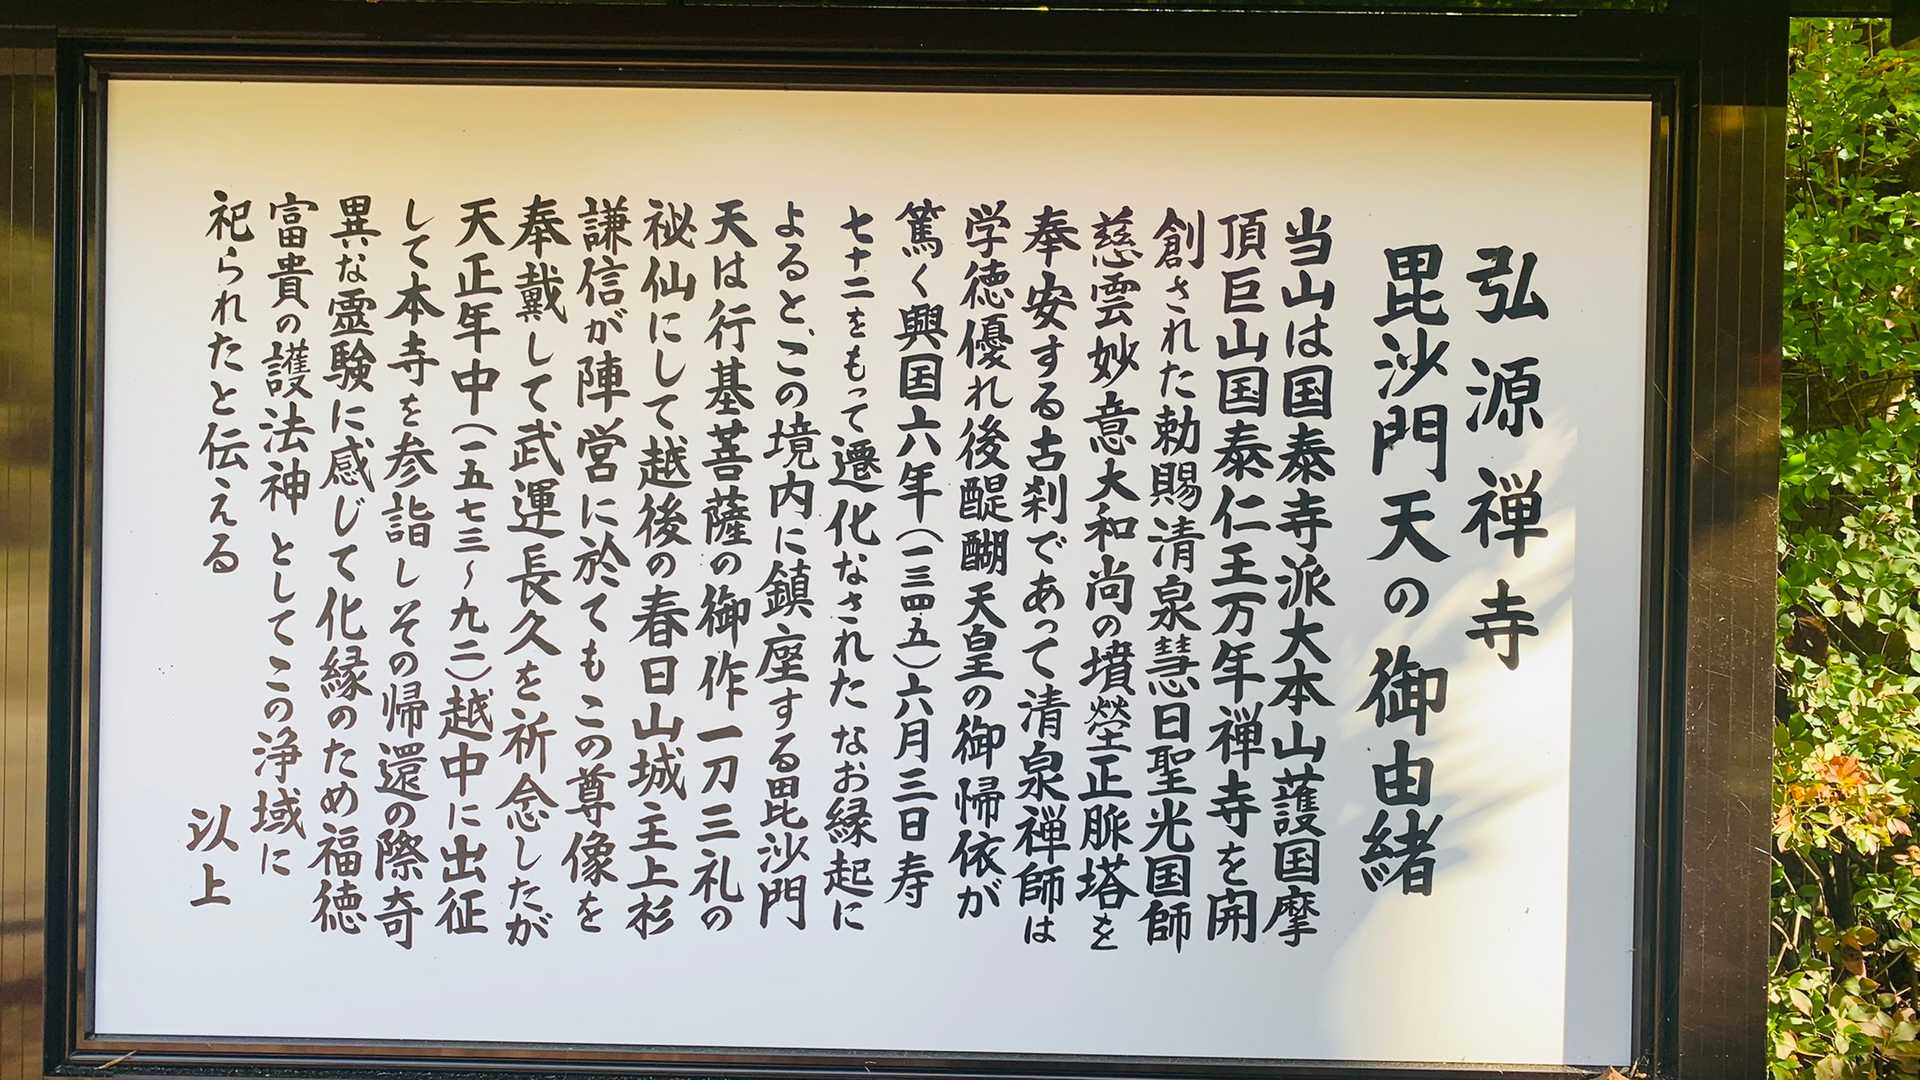 弘源禅寺
毘沙門天の御由緒
当山は国泰寺派大本山護国摩
頂巨山国泰仁王万年禅寺を開
創された勅賜清泉慧日聖光国師
慈雲妙意大和尚の墳塋正脈塔を
奉安する古刹であって清泉禅師は
学徳優れ後醍醐天皇の御帰依が
篤く興国六年(一三四五)六月三日寿
七十二をもって遷化なされた なお縁起に
よると、この境内に鎮座する毘沙門
天は行基菩薩の御作一刀三礼の
祕仙にして越後の春日山城主上杉
謙信が陣営に於てもこの尊像を
奉戴して武運長久を祈念したが
天正年中(一五七三~九二)越中に出征
して本寺を参詣しその帰還の際奇
異な霊験に感じて化縁のため福徳
富貴の護法神としてこの浄域に
祀られたと伝える
以上